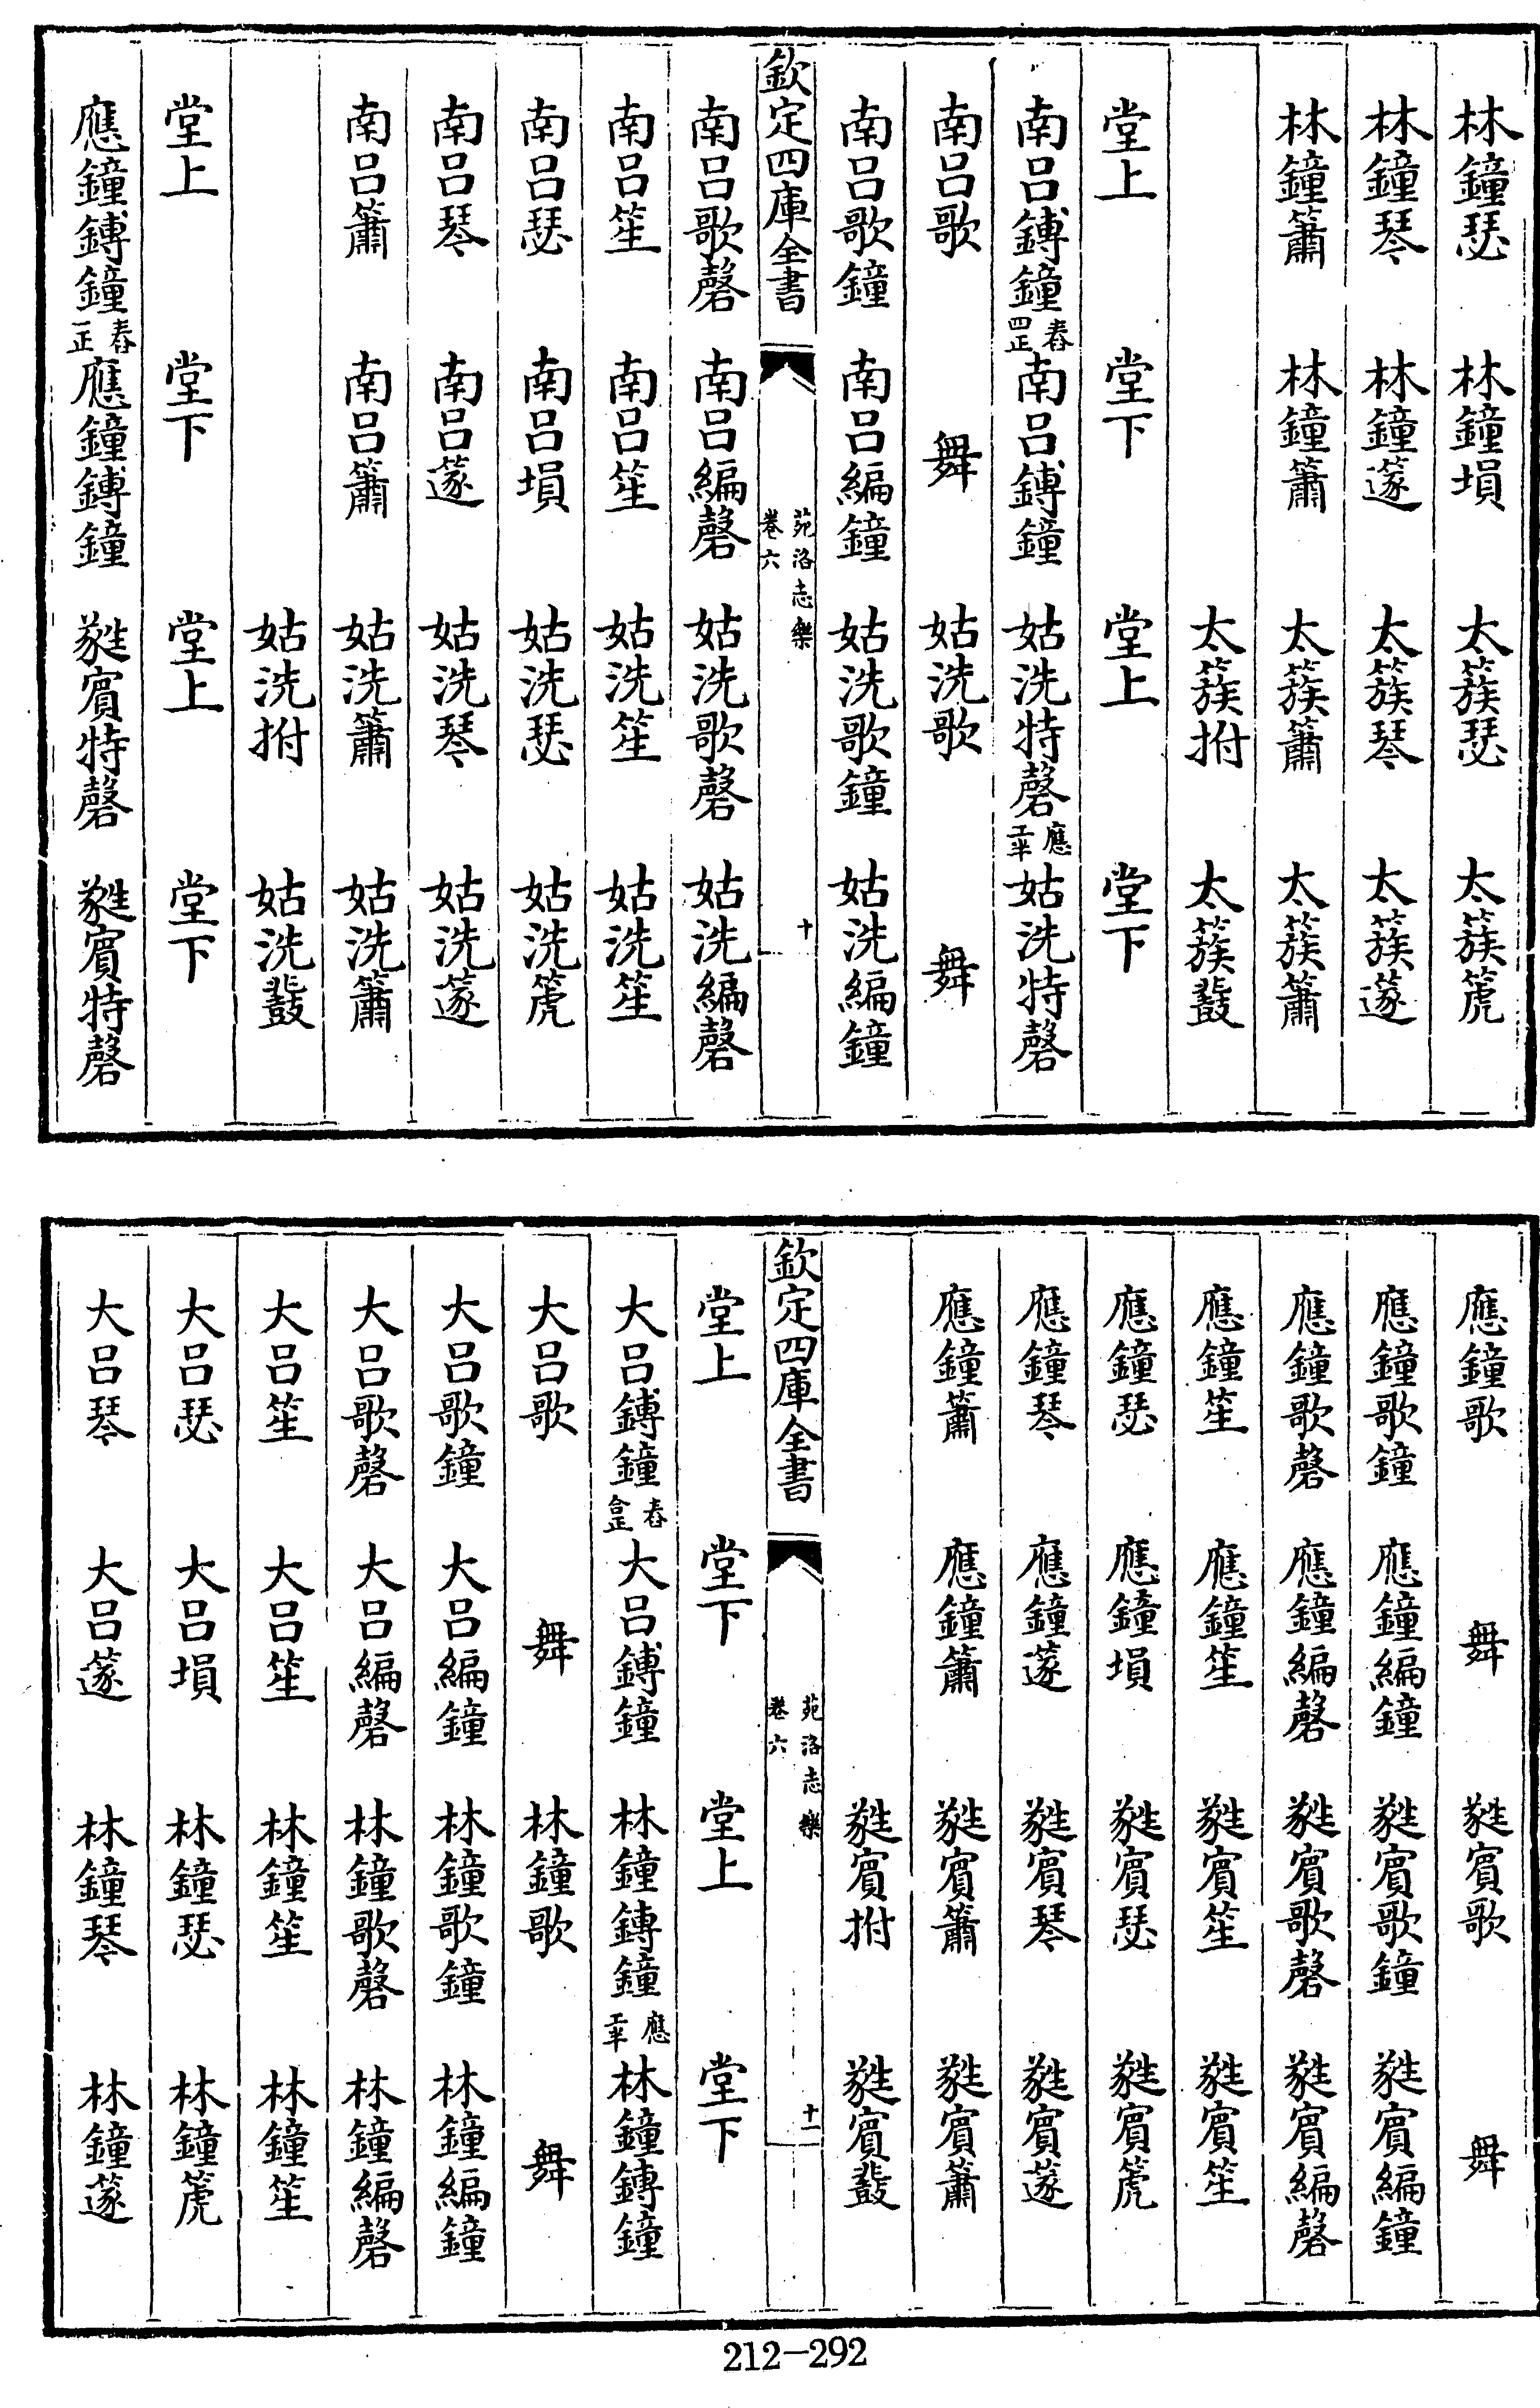 林鐘瑟　林鐘塤　太簇瑟　太簇箎
林鐘琴　林鐘篴　太簇琴　太簇篴
林鐘簫　林鐘簫　太簇簫　太簇簫
太簇拊　太簇鼗
堂上　堂下　堂上　堂下
南呂鎛鐘舂四正南呂鎛鐘　姑洗特磬應工半姑洗特磬
南呂歌　舞　姑洗歌　舞
南呂歌鐘　南呂編鐘　姑洗歌鐘　姑洗編鐘
欽定四庫全書　苑洛志樂卷六　十
南呂歌磬　南呂編磬　姑洗歌磬　姑洗編磬
南呂笙　南呂笙　姑洗笙　姑洗笙
南呂瑟　南呂塤　姑洗瑟　姑洗箎
南呂琴　南呂篴　姑洗琴　姑洗篴
南呂簫　南呂簫　姑洗簫　姑洗簫
姑洗拊　姑洗鼗
堂上　堂下　堂上　堂下
應鐘鎛鐘舂一正應鐘鎛鐘　蕤賓特磬　蕤賓特磬
應鐘歌　舞　蕤賓歌　舞
應鐘歌鐘　應鐘編鐘　蕤賓歌鐘　蕤賓編鐘
應鐘歌磬　應鐘編磬　蕤賓歌磬　蕤賓編磬
應鐘笙　應鐘笙　蕤賓笙　蕤賓笙
應鐘瑟　應鐘塤　蕤賓瑟　蕤賓箎
應鐘琴　應鐘篴　蕤賓琴　蕤賓篴
應鐘簫　應鐘簫　蕤賓簫　蕤賓簫
蕤賓拊　蕤賓鼗
欽定四庫全書　苑洛志樂卷六　十一
堂上　堂下　堂上　堂下
大呂鎛鐘舂合正大呂鎛鐘　林鐘鎛鐘應工半林鐘鎛鐘
大呂歌　舞　林鐘歌　舞
大呂歌鐘　大呂編鐘　林鐘歌鐘　林鐘編鐘
大呂歌磬　大呂編磬　林鐘歌磬　林鐘編磬
大呂笙　大呂笙　林鐘笙　林鐘笙
大呂瑟　大呂塤　林鐘瑟　林鐘箎
大呂琴　大呂篴　林鐘琴　林鐘篴
212-292